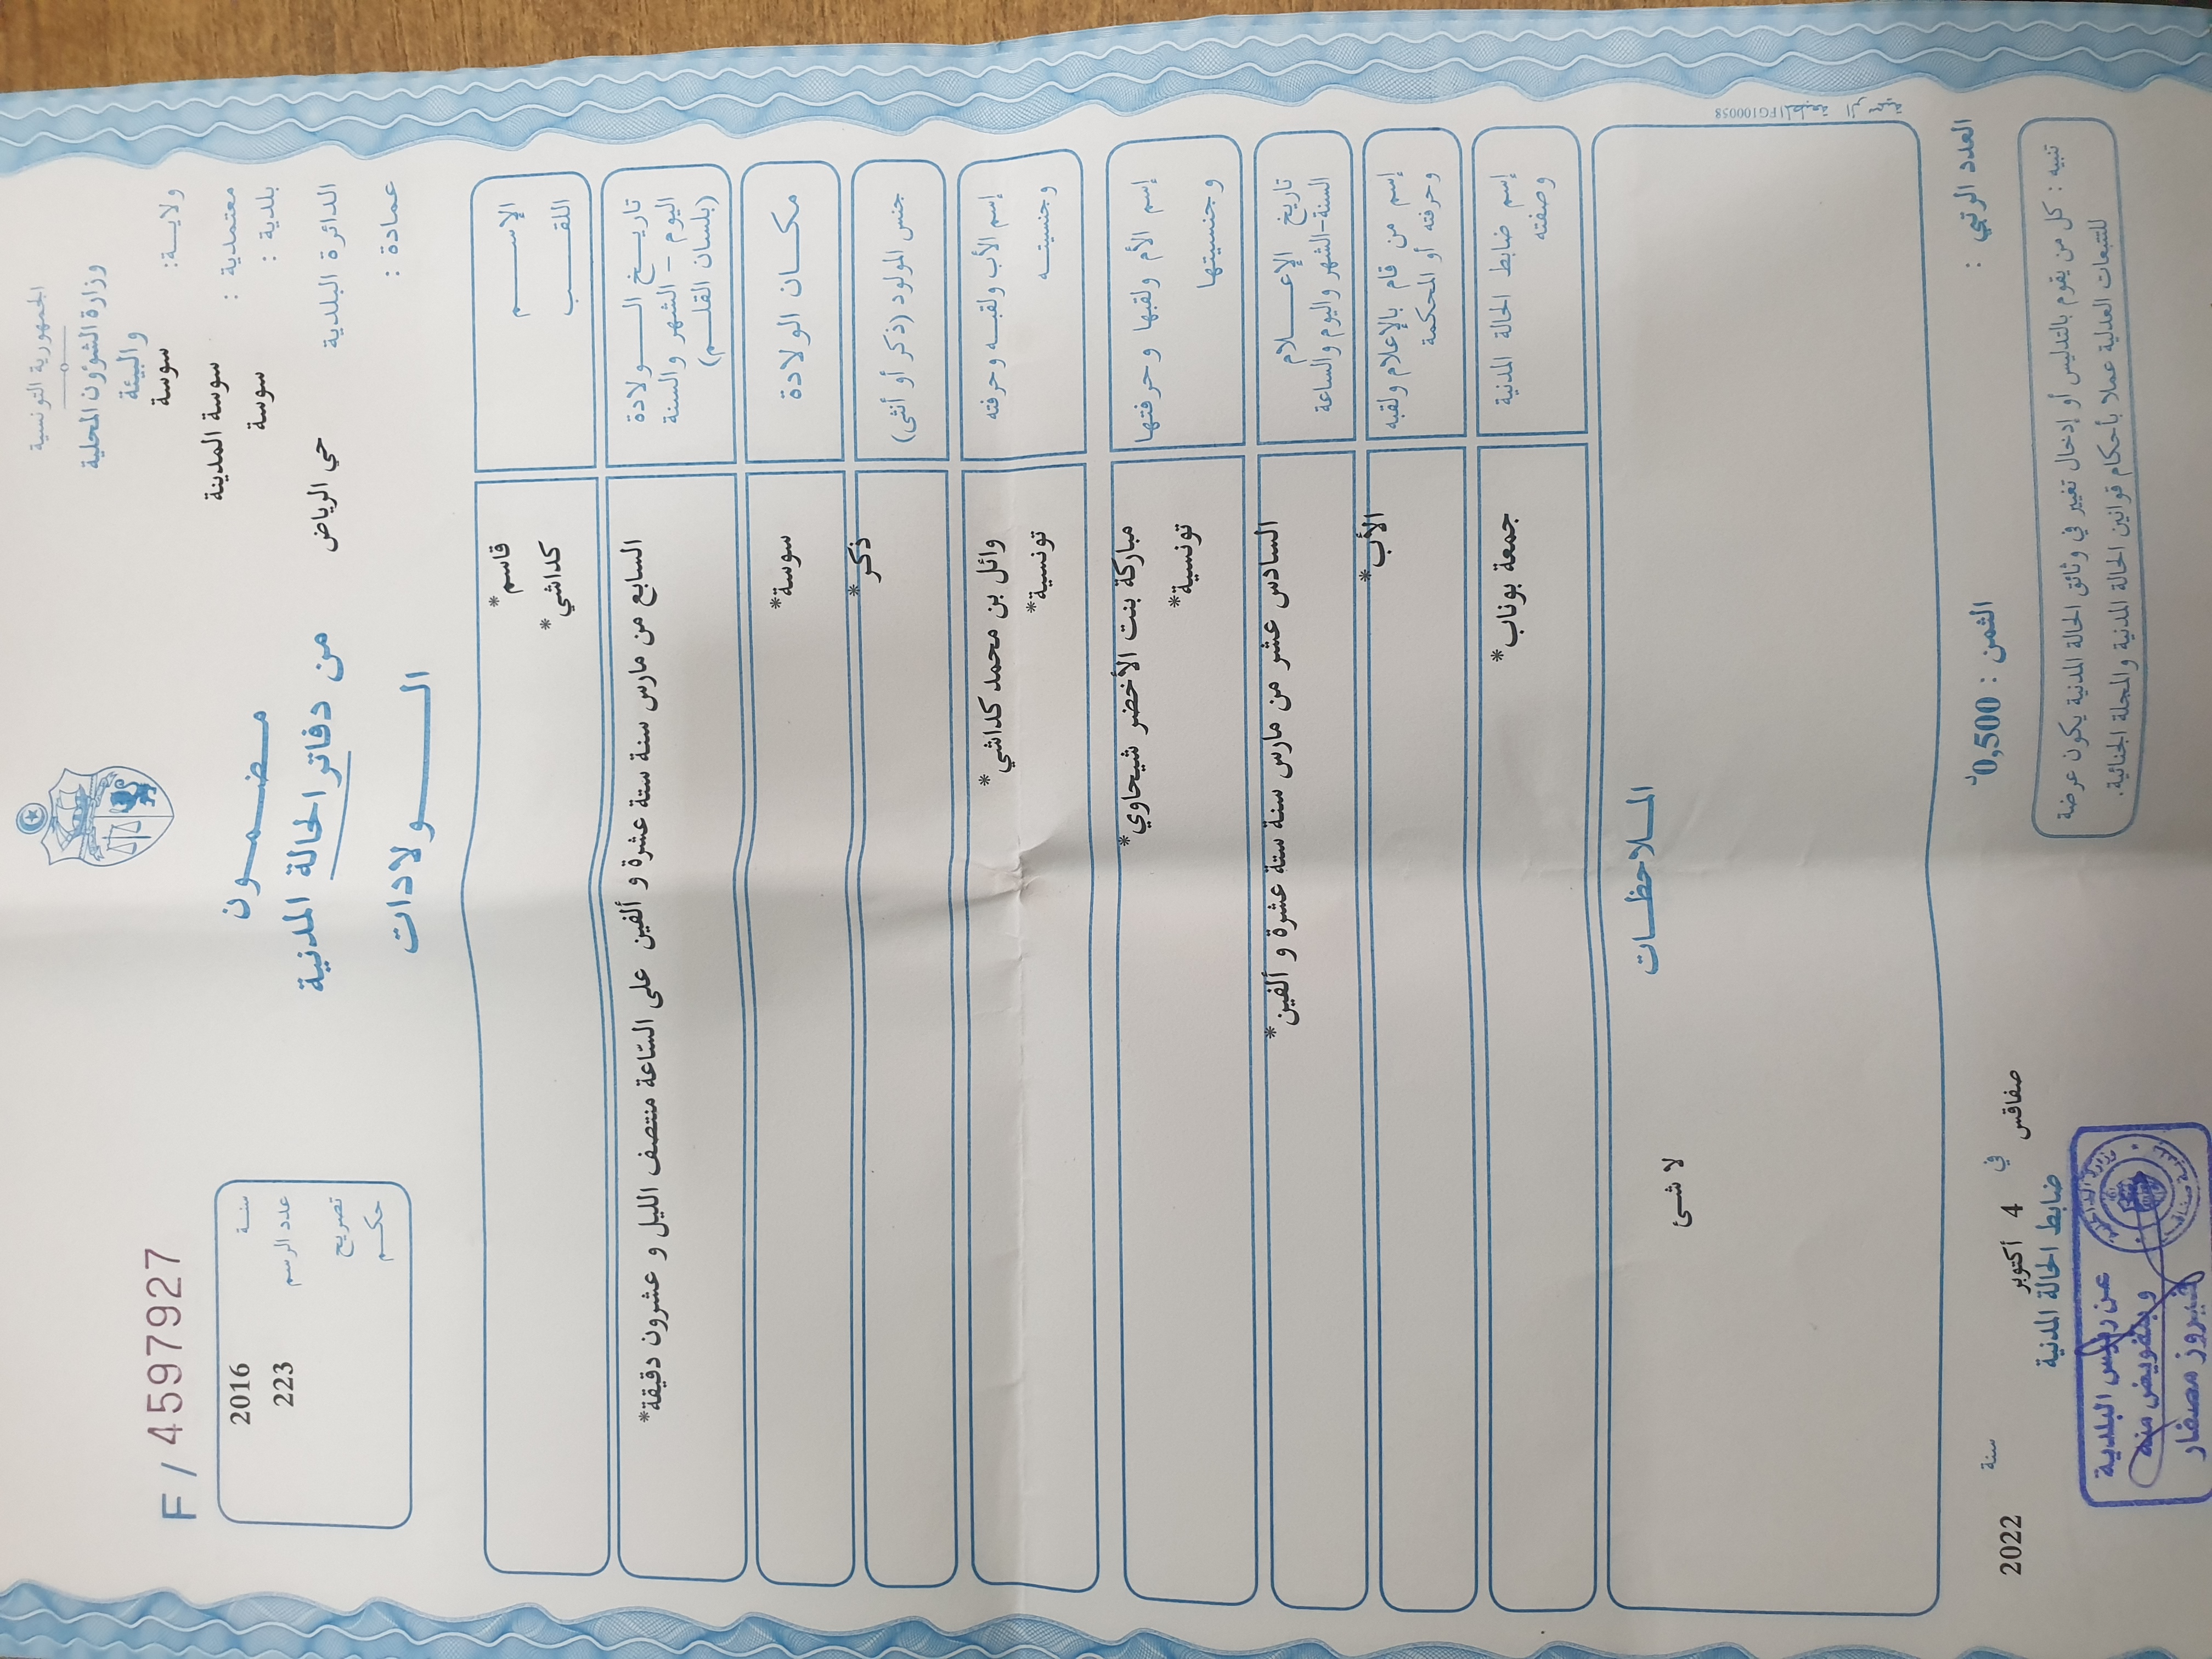 الجمهورية التونسية
وزارة الشؤون المحلية
والبيئة
ولاية: سوسة
معتمدية : سوسة المدينة
بلدية : سوسة
الدائرة البلدية حي الرياض
عمادة :
مضمون
من دفاتر الحالة المدنية
الولادات
F / 4597927
سنة 2016
عدد الرسم 223
تصريح
حكم
الإسم قاسم*
اللقب كداشي*
تاريخ الولادة
اليوم - الشهر والسنة
(بلسان القلم)
السابع من مارس سنة ستة عشرة و ألفين على السّاعة منتصف الليل و عشرون دقيقة*
مكان الولادة سوسة*
جنس المولود (ذكر أو أنثى) ذكر*
إسم الأب ولقبه وحرفته وائل بن محمد كداشي*
وجنسيته تونسية*
إسم الأم ولقبها وحرفتها مباركة بنت الأخضر شيحاوي*
وجنسيتها تونسية*
تاريخ الإعلام
السنة-الشهر واليوم والساعة
السادس عشر من مارس سنة ستة عشرة و ألفين*
إسم من قام بالإعلام ولقبه
وحرفته أو المحكمة
الأب*
إسم ضابط الحالة المدنية
وصفته
جمعة بوناب*
الملاحظات
لا شئ
FG100058
العدد الرتبي :
الثمن : 0,500د
صفاقس في 4 أكتوبر سنة 2022
ضابط الحالة المدنية
تنبيه : كل من يقوم بالتدليس أو إدخال تغيير في وثائق الحالة المدنية يكون عرضة
للتتبعات العدلية عملا بأحكام قوانين الحالة المدنية والمجلة الجنائية.
عن رئيس البلدية
وبتفويض منه
فيروز مصفار